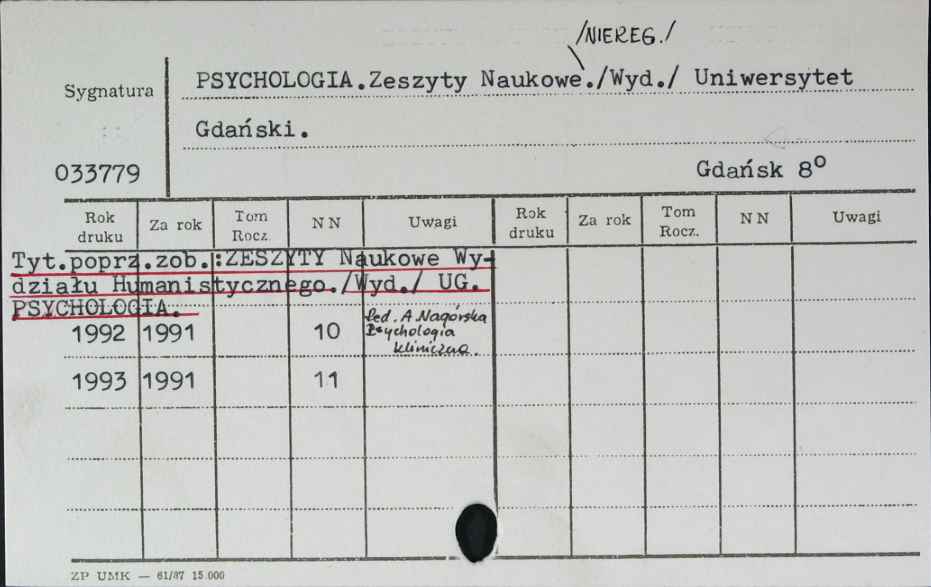 /NIEREG./
Sygnatura
PSYCHOLOGIA.Zeszyty Naukowe./Wyd./ Uniwersytet
Gdański.
033779
Gdańsk 8°
Rok druku Za rok Tom Rocz. NN Uwagi Rok druku Za rok Tom Rocz. NN Uwagi
Tyt.poprz.zob.:ZESZYTY Naukowe Wy-
działu Humanistycznego./Wyd./ UG.
PSYCHOLOGIA.
1992 1991 10 Red. A. Nagórska
Psychologia
kliniczna.
1993 1991 11
ZP UMK — 61/87 15.000